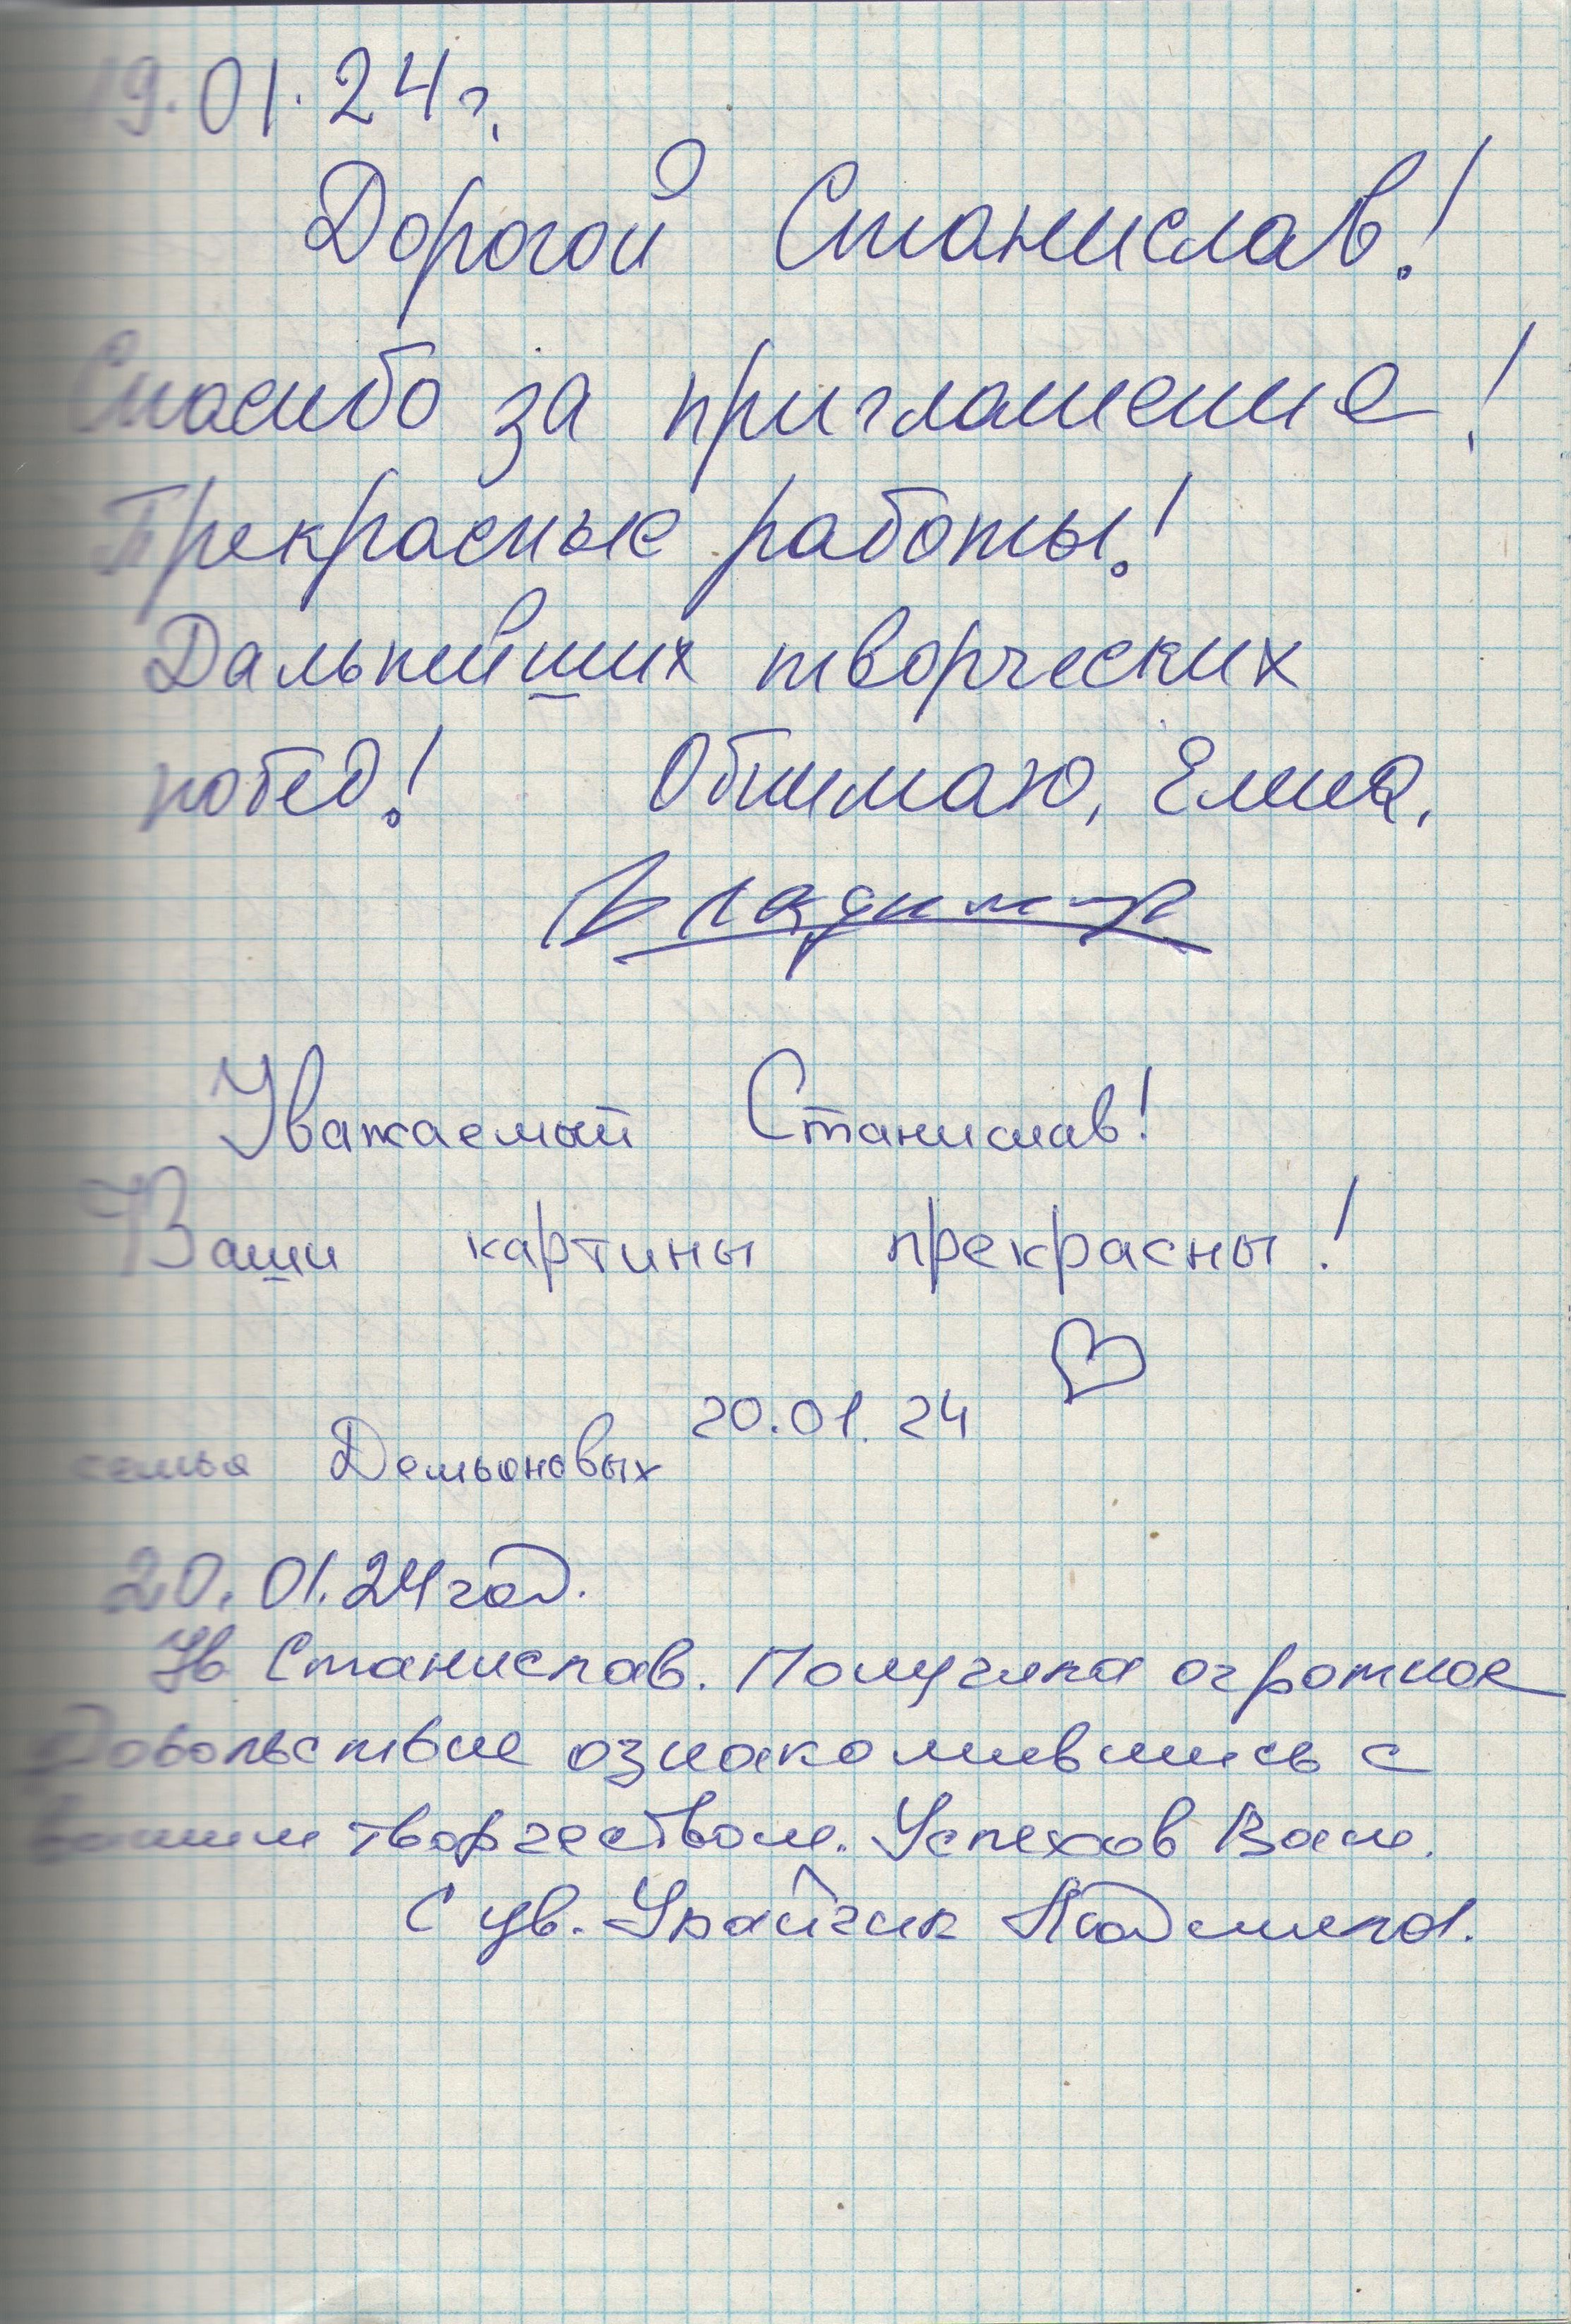 19.01.24 г.
Дорогой Станислав!
Спасибо за приглашение!
Прекрасные работы!
Дальнейших творческих
побед! Обнимаю,
Владимир
Уважаемый Станислав!
Ваши картины прекрасны!
20.01.24
семья Демьяновых
20.01.24 год.
Ув. Станислав. Получила огромное
довольствие ознакомившись с
вашим творчеством. Успехов Вам.
С ув. Людмила.